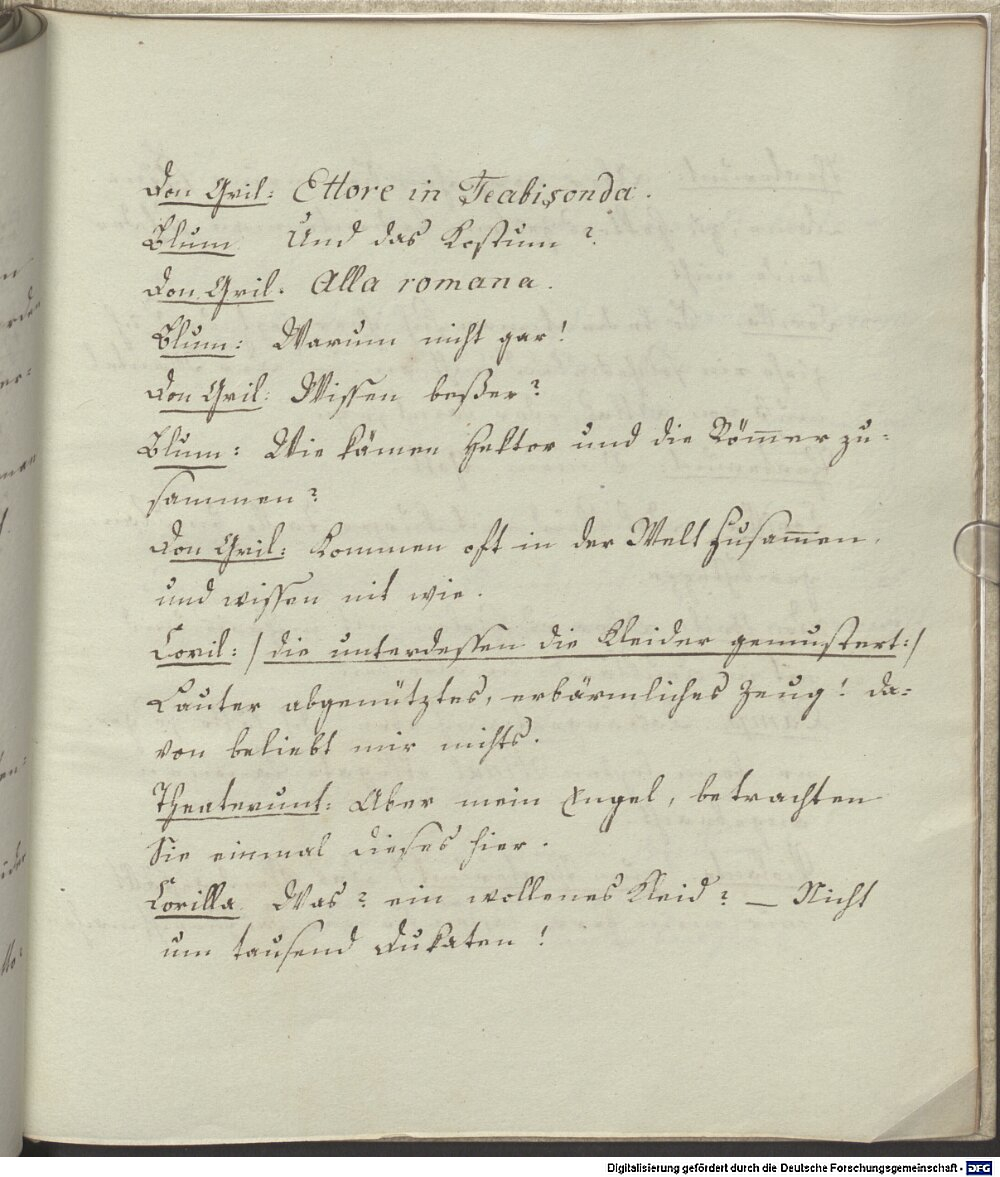 Don Gril: Ettore in Teabisonda.
Blum Und das Kostum?
Don Gril: Alla romana.
Blum: Warum nicht gar!
Don Gril: Wissen beßer?
Blum: Wie kämen Hektor und die Röm̅er zu=
sammen?
Don Gril: Kommen oft in der Welt zusam̅en,
und wissen nit wie.
Coril: /: die unterdessen die Kleider gemustert :/
Lauter abgenütztes, erbärmliches Zeug! da=
von beliebt mir nichts.
Theaterunt: Aber mein Engel, betrachten
Sie einmal dieses hier.
Corilla Was? ein wollenes Kleid? — Nicht
um tausend Dukaten!
Digitalisierung gefördert durch die Deutsche Forschungsgemeinschaft - DFG